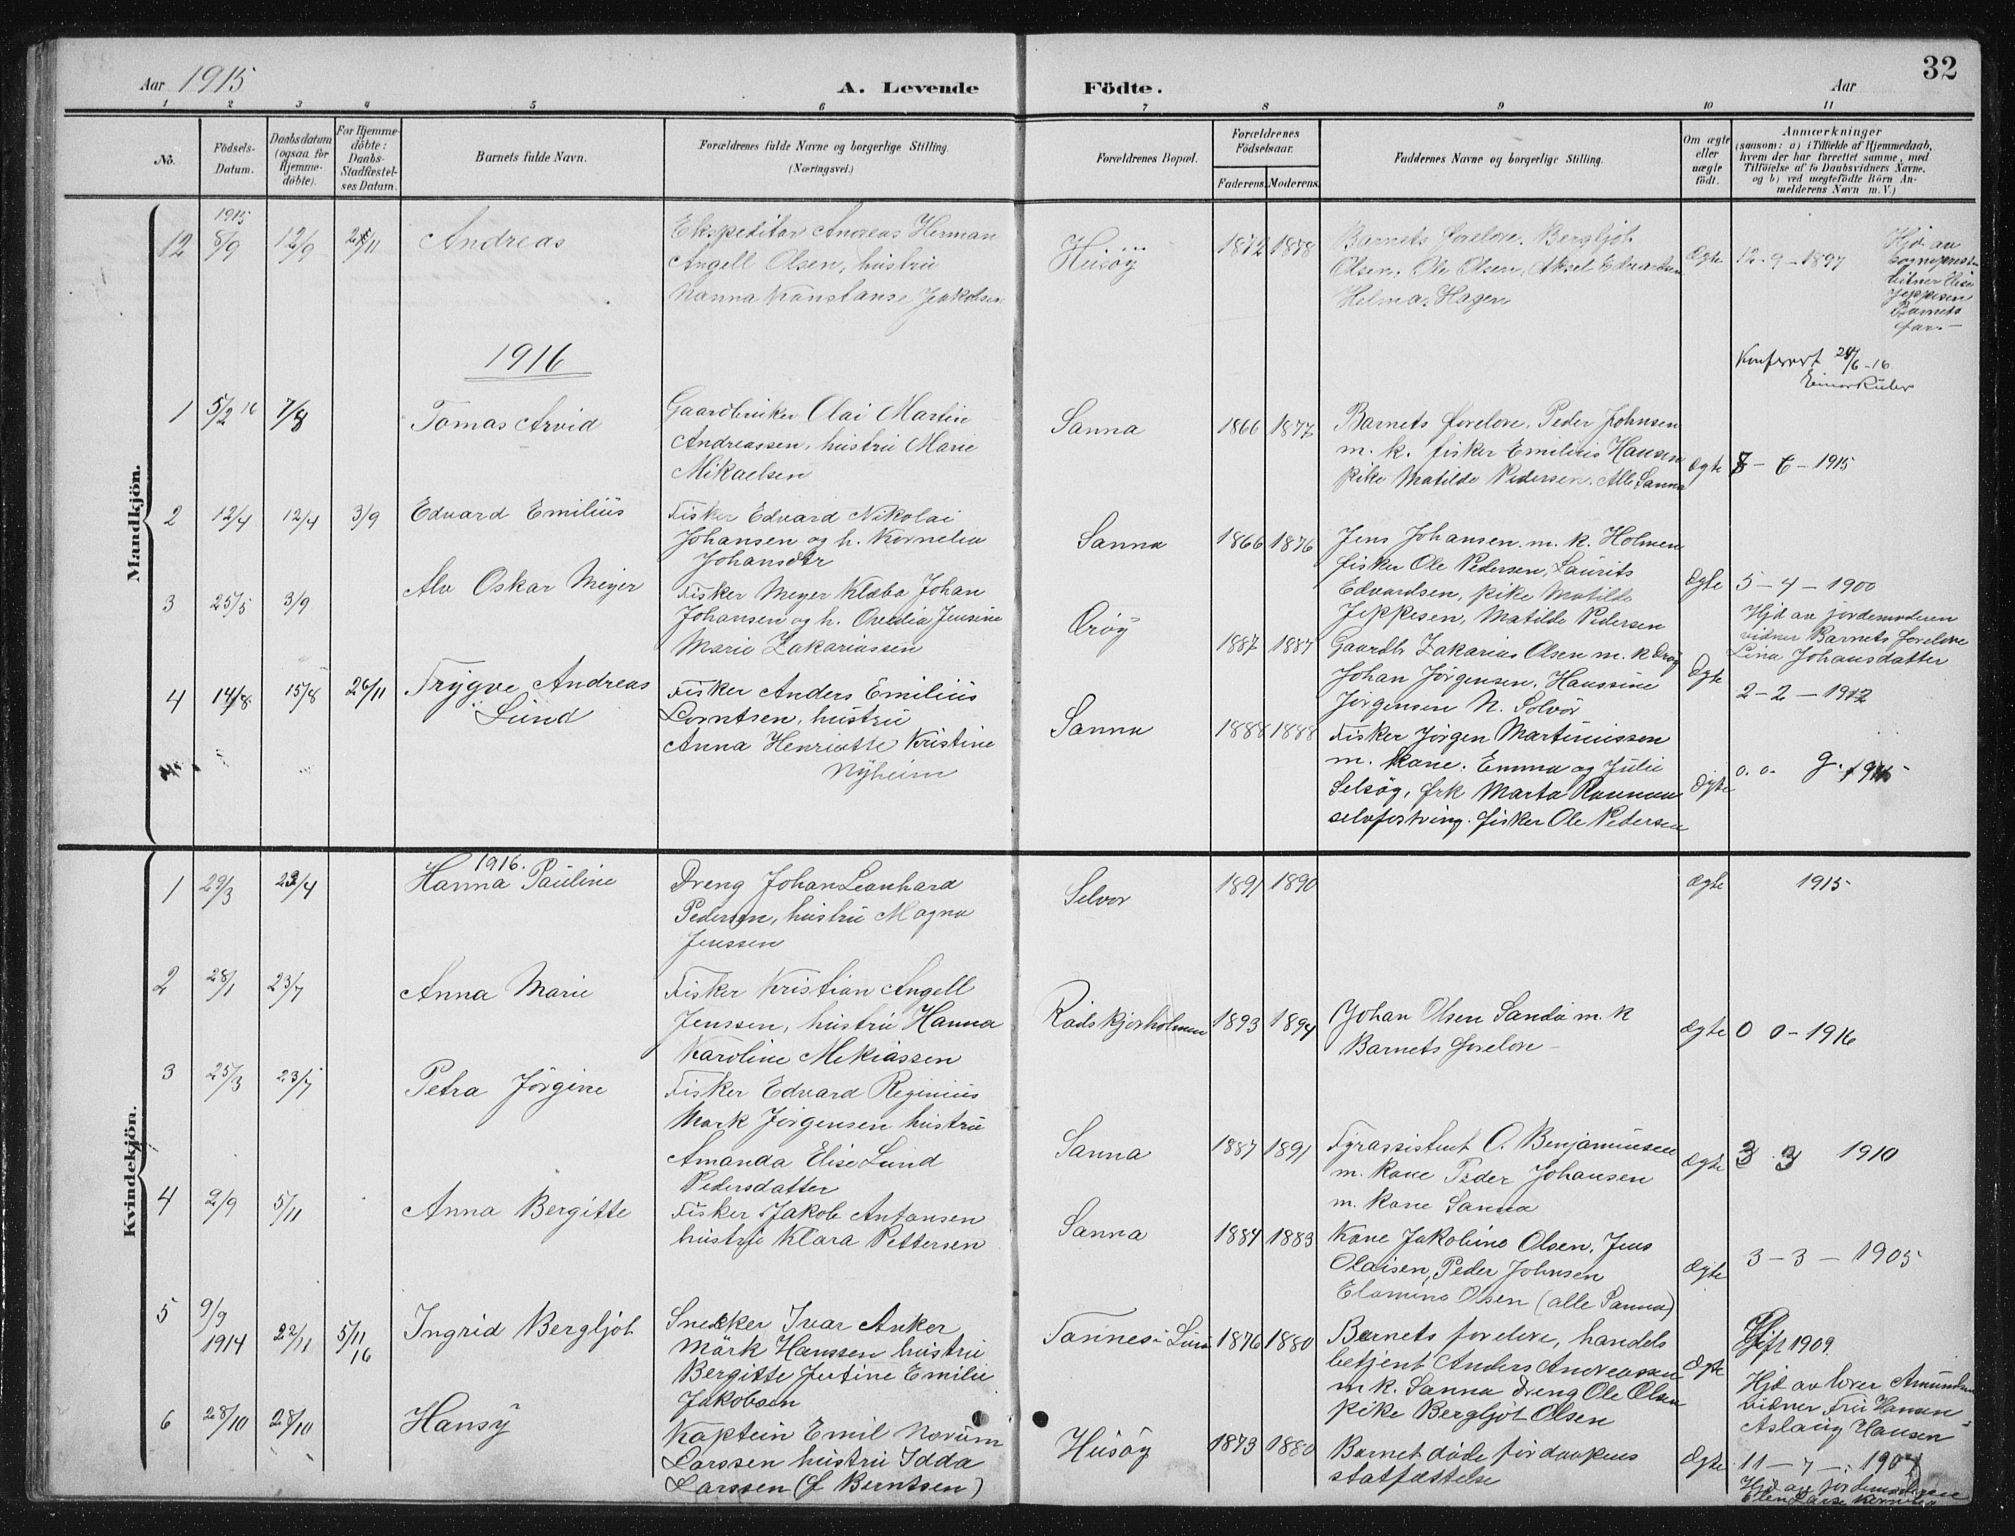 32
Aar 1915
A. Levende Födte.
Aar
1 2 3 4 5 6 7 8 9 10 11
No.
Födsels-Datum.
Daabsdatum (ogsaa for Hjemme-döbte).
For Hjemme-döbte: Daabs-Stadfæstel-ses Datum.
Barnets fulde Navn.
Forældrenes fulde Navne og borgerlige Stilling.
(Næringsvei.)
Forældrenes Bopæl.
Forældrenes Födselsaar.
Faderens. Moderens.
Faddernes Navne og borgerlige Stilling.
Om ægte eller uægte födt.
Anmærkninger
(saasom: a) i Tilfælde af Hjemmedaab,
hvem der har forrettet samme, med
Tilföielse af to Daabsvidners Navne.
og b) ved uægtefödte Börn An-
melderens Navn m. V.)
Mandkjön.
1915
12 8/9 12/9 /11 Andreas
Ekspeditör Andreas Herman
Angell Olsen, hustru
Nanna Konstanse Jakobsen
Husöy 1872 1878
Barnets forelore. Bergljot
Olsen. Ole Olsen, Aksel Edvardsen
Helma Hagen
Ægte 12-9-1897
Hjd. av
Jeppesen
Barnets
far.
1916
Konferert 24/6-16.
1 5/2 16 7/8 Tomas Arvid
Gaardbruker Olai Martin
Andreassen, hustru Marie
Mikaelsen
Sanna 1866 1877
Barnets forelore, Peder Johnsen
m. k. fisker Emilius Hansen
pike Matilde Pedersen. Alle Sanna
Ægte - 1915
2 12/4 12/4 3/9 Edvard Emilius
Fisker Edvard Nikolai
Johansen og h. Kornelia
Johansdtr
Sanna 1866 1876
Jens Johansen. m. k. Holmen
fisker Ole Pedersen, Laurits
Edvardsen, pike Matilde
Jeppesen, Matilde Pedersen
Ægte 5-4-1900
Hjd av jordemoderen
vidner Barnets forelore
Lina Johansdatter
3 25/5 3/9 Alv Oskar Meyer
Fisker Meyer Klæbo Johan
Johansen og h. Ovedia Jensine
Marie Zakariassen
Öröy 1887 1887
Gaardb. Zakarias Olsen m. k Öröy
Johan Jörgensen, Hansine
Jörgensen N. Solvær
Ægte 2-2-1912
4 14/8 15/8 26/11 Trygve Andreas
Lund
Fisker Anders Emilius
Lorntsen, hustru
Anna Henriette Kristine
Nyheim
Sanna 1888 1888
Fisker Jörgen Martinussen
m. kone. Emma og Julie
Selsöy, frk Marta
selvforsöring. fisker Ole Pedersen
Ægte 0. 0.
Kvindekjön.
1916.
1 29/3 23/4 Hanna Pauline
Dreng Johan Leonhard
Pedersen, hustru Magna
Jenssen
Selvær 1891 1890 Ægte 1915
2 28/1 23/7 Anna Marie
Fisker Kristian Angell
Jenssen, hustru Hanna
Karoline Mekiassen
Rödskjærholmen 1893 1894
Johan Olsen Sandö m. k
Barnets forelore
Ægte 0 0-1916
3 25/3 23/7 Petra Jörgine
Fisker Edvard Reginius
Mork Jörgensen hustru
Amanda Elise Lund
Pedersdatter
Sanna 1887 1891
Fyrassistent O. Benjaminsen
m. kone Peder Johansen
m. kone Sanna
Ægte 3 3 1910
4 2/9 5/11 Anna Bergitte
Fisker Jakob Antonsen
hustru Klara Pettersen
Sanna 1884 1883
Kone Jakobine Olsen, Jens
Olaisen, Peder Johnsen
Olsen (alle Sanna)
Ægte 3-3-1905
5 9/9 1914 22/11 5/11 16 Ingrid Bergljot
Snedker Ivar Anker
Mörk Hanssen hustru
Bergitte Justine Emilie
Jakobsen
Tonnes i Lurö 1876 1880
Barnets forelore, handels
betjent Anders Andreassen
m k. Sanna Dreng Ole Olsen
pike Bergljot Olsen
Ægte Gift 1909
Hjd av lærer Amundsen
vidner Fru Hansen
Aslaug Hansen
6 28/10 28/10 Hansy
Kaptein Emil Norum
Larssen hustru Idda
Larssen (f Berntsen)
Husöy 1873 1880
Barnet döde för daapens
statfæstelse
Ægte 11-7-1907
Hjd av jordemoderen